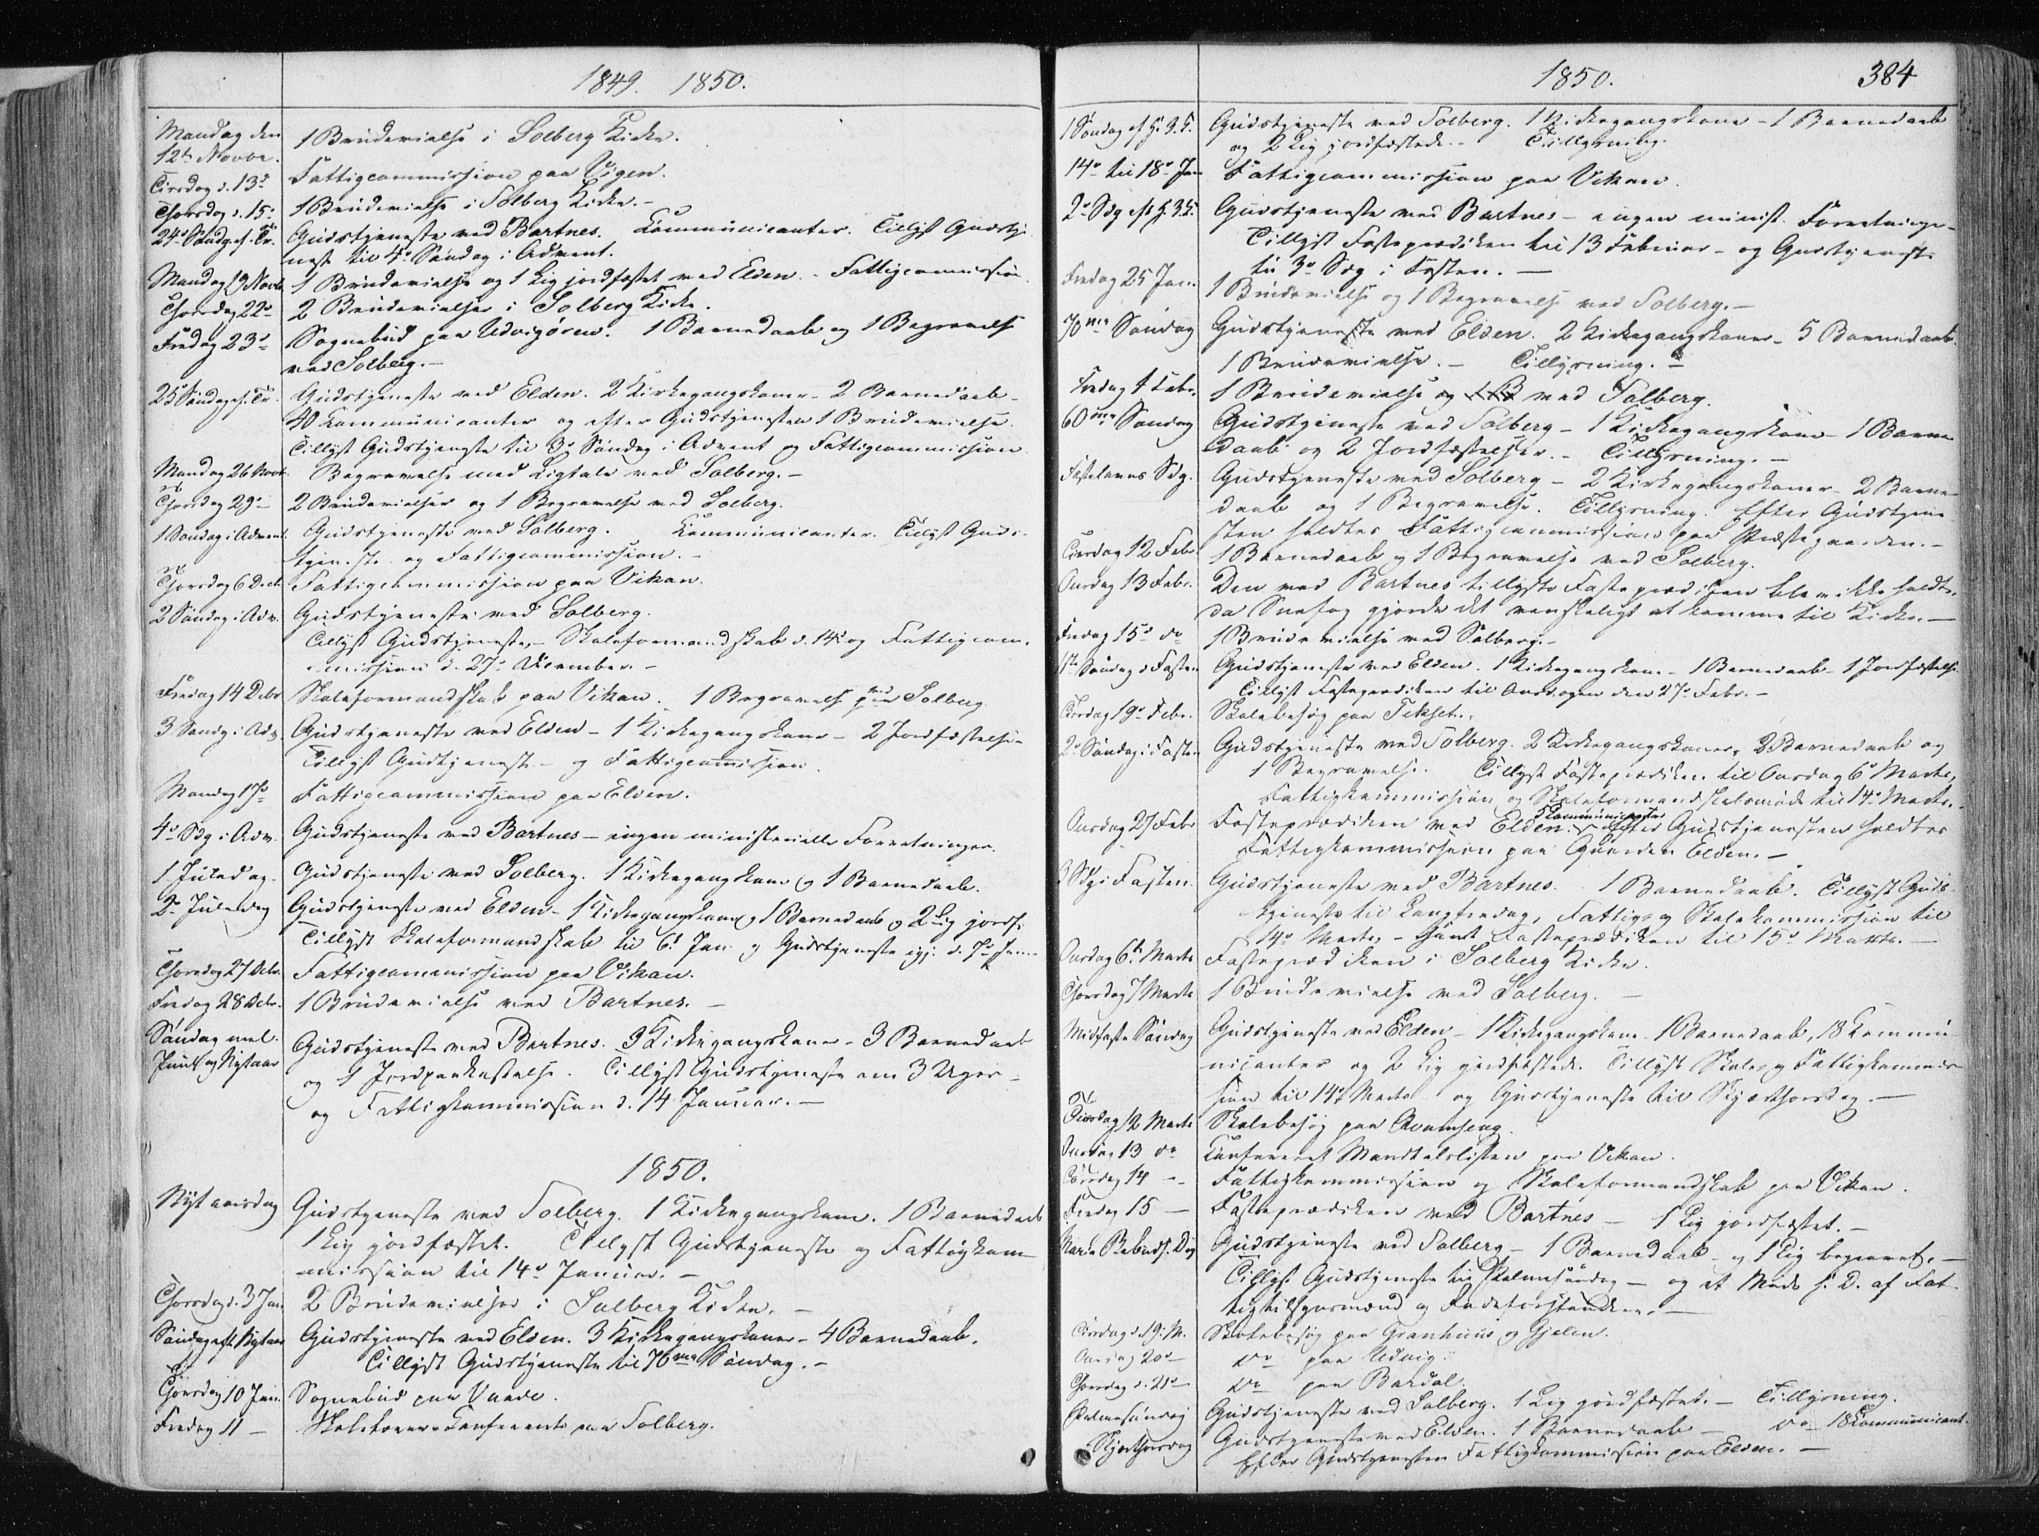 1849. 1850.
Mandag den 1 Brudevielse i Solberg Kirke.
12te Novbr.
Tirsdag d. 13d Fattigcommission paa Vigen.
Thorsdag d. 15. 1 Brudevielse i Solberg Kirke. -
24d Søndag ef. Tr. Gudstjeneste ved Bartnes. Kommunicanter. Tillyst Gudstje-
neste til 4d Søndag i Advent.
Mandag 19 Novb. 1 Brudevielse og 1 Lig jordfæstet ved Elden. - Fattigcommission
Thorsdag 22d 2 Brudevielser i Solberg Kirke.
Fredag 23d Sognebud paa Udvigøren. 1 Barnedaab og 1 Begravelse
ved Solberg. -
25d Søndag ef. Tr. Gudstjeneste ved Elden. 2 Kirkegangskoner - 2 Barnedaab -
40 Kommunicanter og efter Gudstjenesten 1 Brudevielse.
Tillyst Gudstjeneste til 3d Søndag i Advent og Fattigcommission
Mandag 26 Novb. Begravelse med Ligtale ved Solberg. -
Thorsdag 29d - 2 Brudevielser og 1 Begravelse ved Solberg.
1 Søndag i Advent Gudstjeneste ved Solberg. Kommunicanter. Tillyst Guds-
tjeneste og Fattigcommission. -
Thorsdag 6 Decb. Fattigcommission paa Vikan.
2 Søndag i Adv. Gudstjeneste ved Solberg.
Tillyst Gudstjeneste, - Skoleformandskab d. 14d og Fattigcom-
mission d. 27d December. -
Fredag 14 Debr Skoleformandskab paa Vikan. 1 Begravelse ved Solberg
3 Søndg i Adv. Gudstjeneste ved Elden - 1 Kirkegangskone - 2 Jordfæstelser
Tillyst Gudtjeneste - og Fattigcommission.
Mandag 17d Fattigcommission paa Elden.
4d Sdg i Adv. Gudstjeneste ved Bartnes - ingen ministerielle Forretninger.
1 Juledag. Gudstjeneste ved Solberg. 1 Kirkegangskone og 1 Barnedaab.
2d Juledag Gudstjeneste ved Elden - 1 Kirkegangskone og 1 Barnedaab og 2 Lig jordf.
Tillyst Skoleformandskab til 6d Jan og Gudstjeneste
Thorsdag 27 Debr. Fattigcommission paa Vikan.
Fredag 28 Debr. 1 Brudevielse ved Bartnes. -
Søndag mel. Gudstjeneste ved Bartnes. 3 Kirkegangskoner - 3 Barnedaab
Juul og Nytaar og 1 Jordpaakastelse. Tillyst Gudstjeneste om 3 Uger -
og Fattigkommission d. 14 Januar. -
1850.
Nytaarsdag Gudstjeneste ved Solberg. 1 Kirkegangskone. 1 Barnedaab
1 Lig jordfæstet. Tillyst Gudstjeneste og Fattigkom-
mission til 14d Januar. -
Thorsdag d. 3 Jan 2 Brudevielser i Solberg Kirke. -
Søndag eft. Nytaar Gudstjeneste ved Elden. 3 Kirkegangskoner - 4 Barnedaab.
Tillyst Gudstjeneste til 70me Søndag. -
Thorsdag 10 Jan. Sognebud paa
Fredag 11 - Skolelærer Conferents paa Solberg.
1850. 384
1 Søndag ef. H. 3. K. Gudstjeneste ved Solberg. 1 Kirkegangskone - 1 Barnedaab
og 2 Lig jordfæstede. - Tillysning.
14d til 18d Jan Fattigcommission paa Vikan.
2d Sdg eft H. 3. K. Gudstjeneste ved Bartnes - ingen minist. Forretninger -
Tillyst Fasteprædiken til 13 Februar - og Gudstjeneste
til 3d Sdg i Fasten. -
Fredag 25 Jan. 1 Brudevielse og 1 Begravelse ved Solberg. -
70me Søndag Gudstjeneste ved Elden. 2 Kirkegangskoner - 5 Barnedaab.
1 Brudevielse. - Tillysning. -
Fredag 1 Febr. 1 Brudevielse og ved Solberg.
60me Søndag Gudstjeneste ved Solberg - 1 Kirkegangskone - 1 Barne-
daab og 2 Jordfæstelser. - Tillysning. -
Fastelavns Sdg. Gudstjeneste ved Solberg - 2 Kirkegangskoner - 2 Barne-
daab og 1 Begravelse. Tillysning. Efter Gudstjene-
sten holdtes Fattigcommission paa Præstegaarden. -
Tirsdag 12 Febr 1 Barnedaab og 1 Begravelse ved Solberg.
Onsdag 13 Febr. Den ved Bartnes tillyste Fasteprædiken blev ikke holdt,
da Snefog gjorde det vanskeligt at komme til Kirke. -
Fredag 15d do 1 Brudevielse ved Solberg. -
1ste Søndag i Fasten Gudstjeneste ved Elden. 1 Kirkegangskone - 1 Barnedaab - 1 Jordfæstelse
Tillyst Fasteprædiken til Onsdagen den 27d Febr. -
Tirsdag 19d Febr. Skolebesøg paa
2d Søndag i Fasten Gudstjeneste ved Solberg. 2 Kirkegangskoner, 2 Barnedaab og
1 Begravelse. Tillyst Fasteprædiken til Onsdag 6d Marts,
Fattigkommission og Skoleformandskabsmøde til 14d Marts.
Onsdag 27 Febr Fasteprædiken ved Elden. Kommunicanter efter Gudstjenesten holdtes
Fattigkommission paa Gaarden Elden. -
3 Sdg i Fasten Gudstjeneste ved Bartnes. 1 Barnedaab. Tillyst Guds-
tjeneste til Langfredag, Fattig- og Skolekommission til
14d Marts, - samt Fasteprædiken til 15d Marts. -
Onsdag 6te Marts Fasteprædiken i Solberg Kirke.
Thorsdag 7 Marts 1 Brudevielse ved Solberg. -
Midfaste Søndag Gudstjeneste ved Elden - 1 Kirkegangskone - 1 Barnedaab, 18 Kommu-
nicanter og 2 Lig jordfæstede. Tillyst Skole- og Fattigkommis-
sion til 14d Marts og Gudstjeneste til Skjærthorsdag. -
Tirsdag 12 Marts Skolebesøg paa
Onsdag 13 do Confereret Mandtalslisten paa Vikan.
Torsdag 14 - Fattigkommission og Skoleformandskab paa Vikan.
Fredag 15 - Fasteprædiken ved Bartnes - 1 Lig jordfæstet. -
Mariæ Bebud. Dag Gudstjeneste ved Solberg - 1 Barnedaab - og 1 Lig begravet. -
Tillyst Gudstjeneste til Palmesøndag - og et Møde s. D. af Fat-
tigtilsynsmænd og
Tirsdag d. 19. M. Skolebesøg paa Granhuus og Gjelen.
Onsdag 20d - do paa Udvig.
Thorsdag d. 21d - do paa Bardal.
Palmesøndag Gudstjeneste ved Solberg. 1 Lig jordfæstet. - Tillysning.
Skjærthorsdag Gudstjeneste ved Elden. 1 Barnedaab - do - 18 Communicant.
Efter Gudstjenesten Fattigkommission paa Elden. -